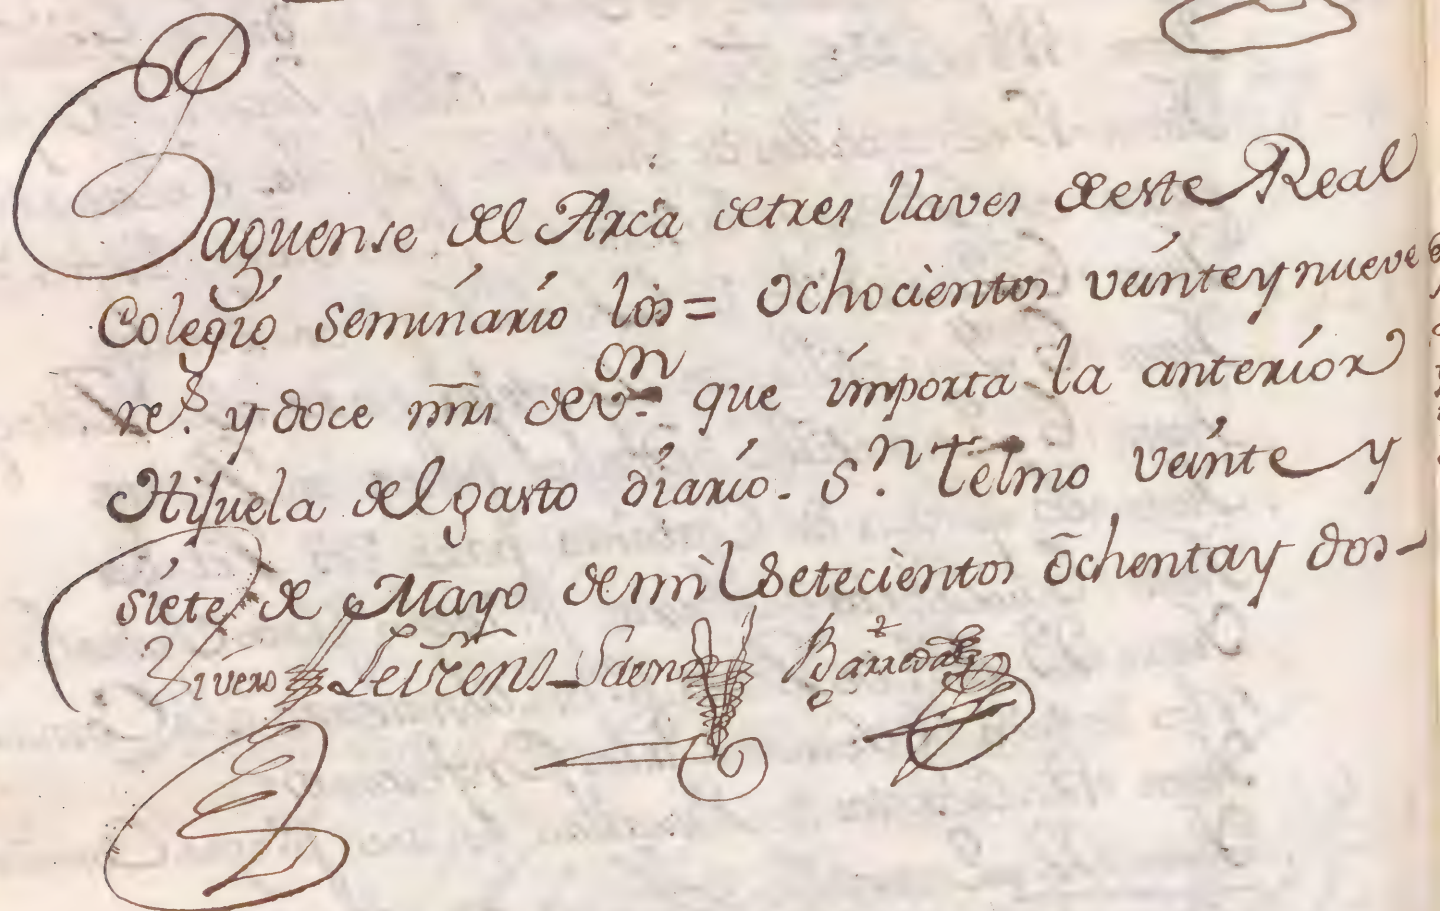 Saquense del Arca de tres llaves de este Real
Colegio Seminario los = Ochocientos veinte y nueve
rs. y doce mrs de von. que importa la anterior
Hijuela del gasto diario. Sn. Telmo veinte y
siete de Mayo de mil Setecientos ōchenta y dos-
Vivero Saenz Barreda